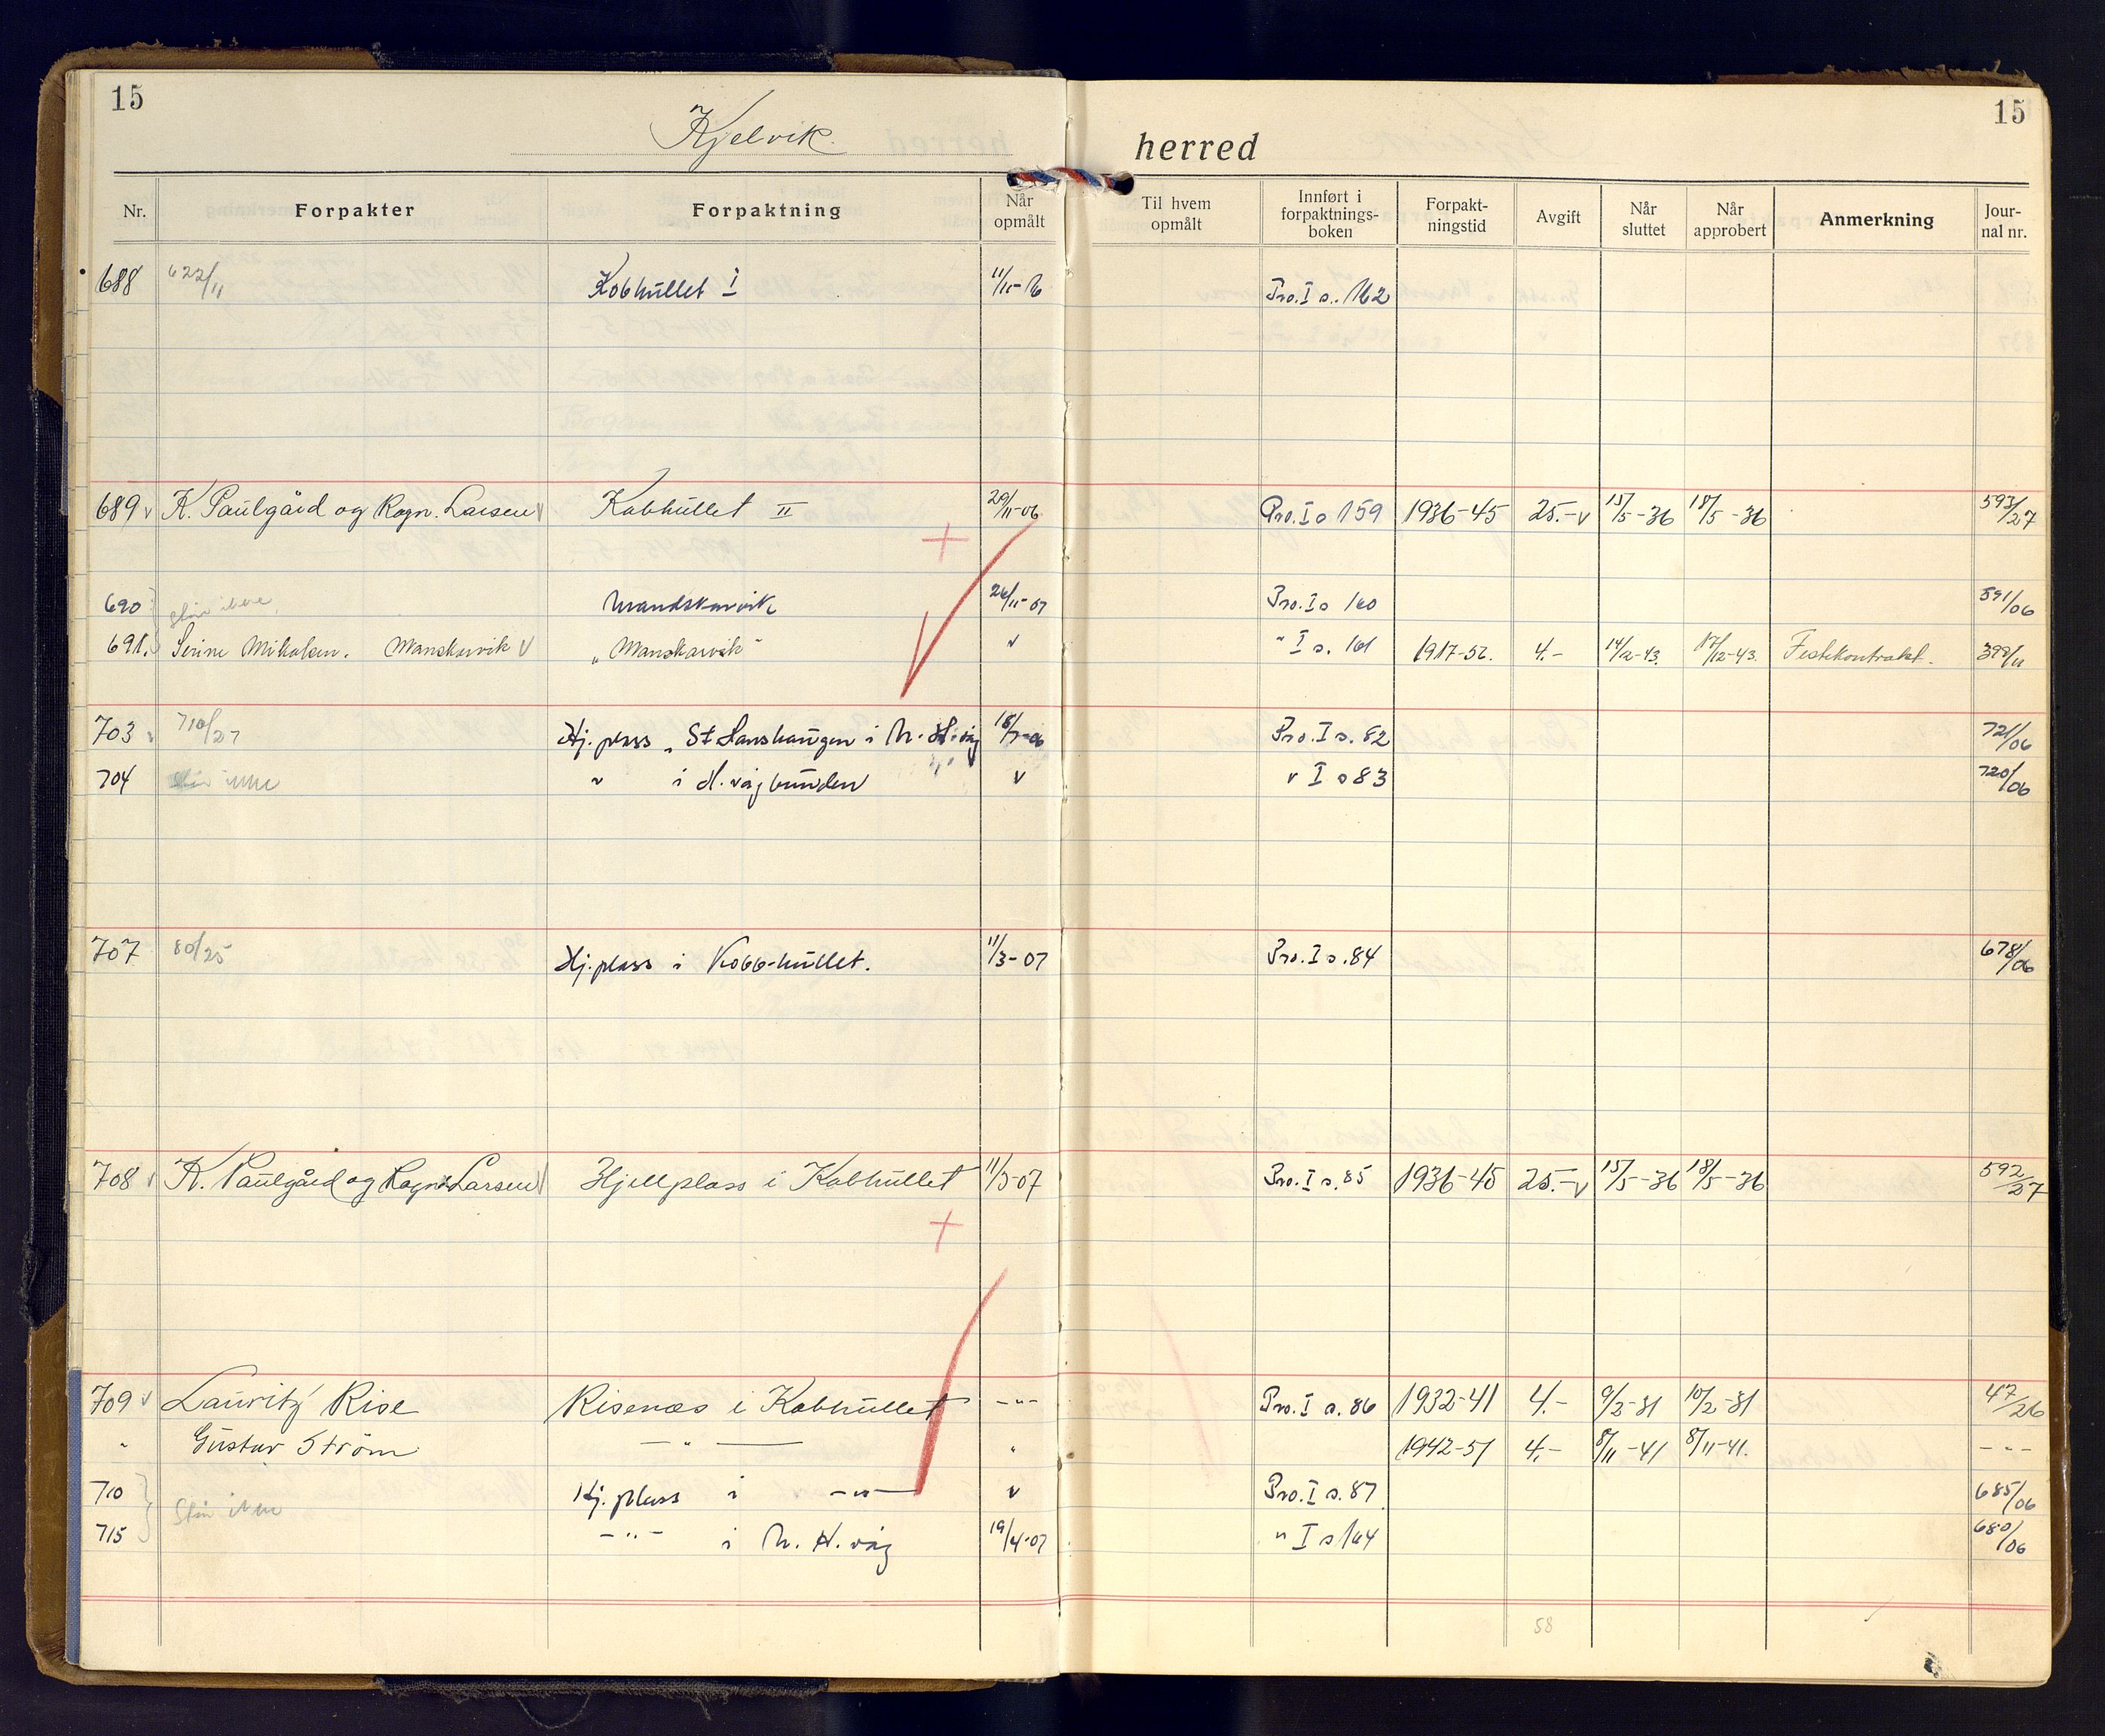 15
15
Kjelvik herred
Nr. Forpakter Forpaktning Når opmålt Til hvem opmålt Innført i forpaktnings-boken Forpakt-ningstid Avgift Når sluttet Når approbert Anmerkning Jour-nal nr.
688 622/11 Kobhullet I Pro. I s. 162
689 v K. Paulgård og Ragn. Larsen v Kobhullet II 29/11-06 Pro. I s 159 1936-45 25.- v 15/5-36 18/5-36 593/27
690 Står ikke Mandskarvik 26/11-07 Pro. I s 160 591/06
691. Serine Mikalsen. Manskarvik v „Manskarvik" " " I s. 161 1917-56. 4.- 14/2-43. 17/12-43. Festekontrakt. 399/11
703 710/27 Hj. plass „St Hanshaugen i N. H. våg 18/7-06 Pro. I s. 82 721/06
704 Står ikke " i H. vågbunden " " I s 83 720/06
707 80/25 Hj. plass i Kobb-hullet. 11/3-07 Pro. I s. 84 678/06
708 v K. Paulgård og Ragn. Larsen v Hjellplass i Kobhullet 11/3-07 Pro. I s. 85 1936-45 25.- v 15/5-36 18/5-36 592/27
709 v Lauritz Rise Risenæs i Kobhullet -"- Pro. I s. 86 1932-41 4.- 9/2-31 10/2-31 47/26
" Gustav Ström -"- " 1942-51 4.- 8/11-41 8/11-41. -"-
710 Står ikke Hj. plass i -"- " Pro. I s. 87 685/06
715 -"- i N. H. våg 19/4-07 " I s 164 680/06
58